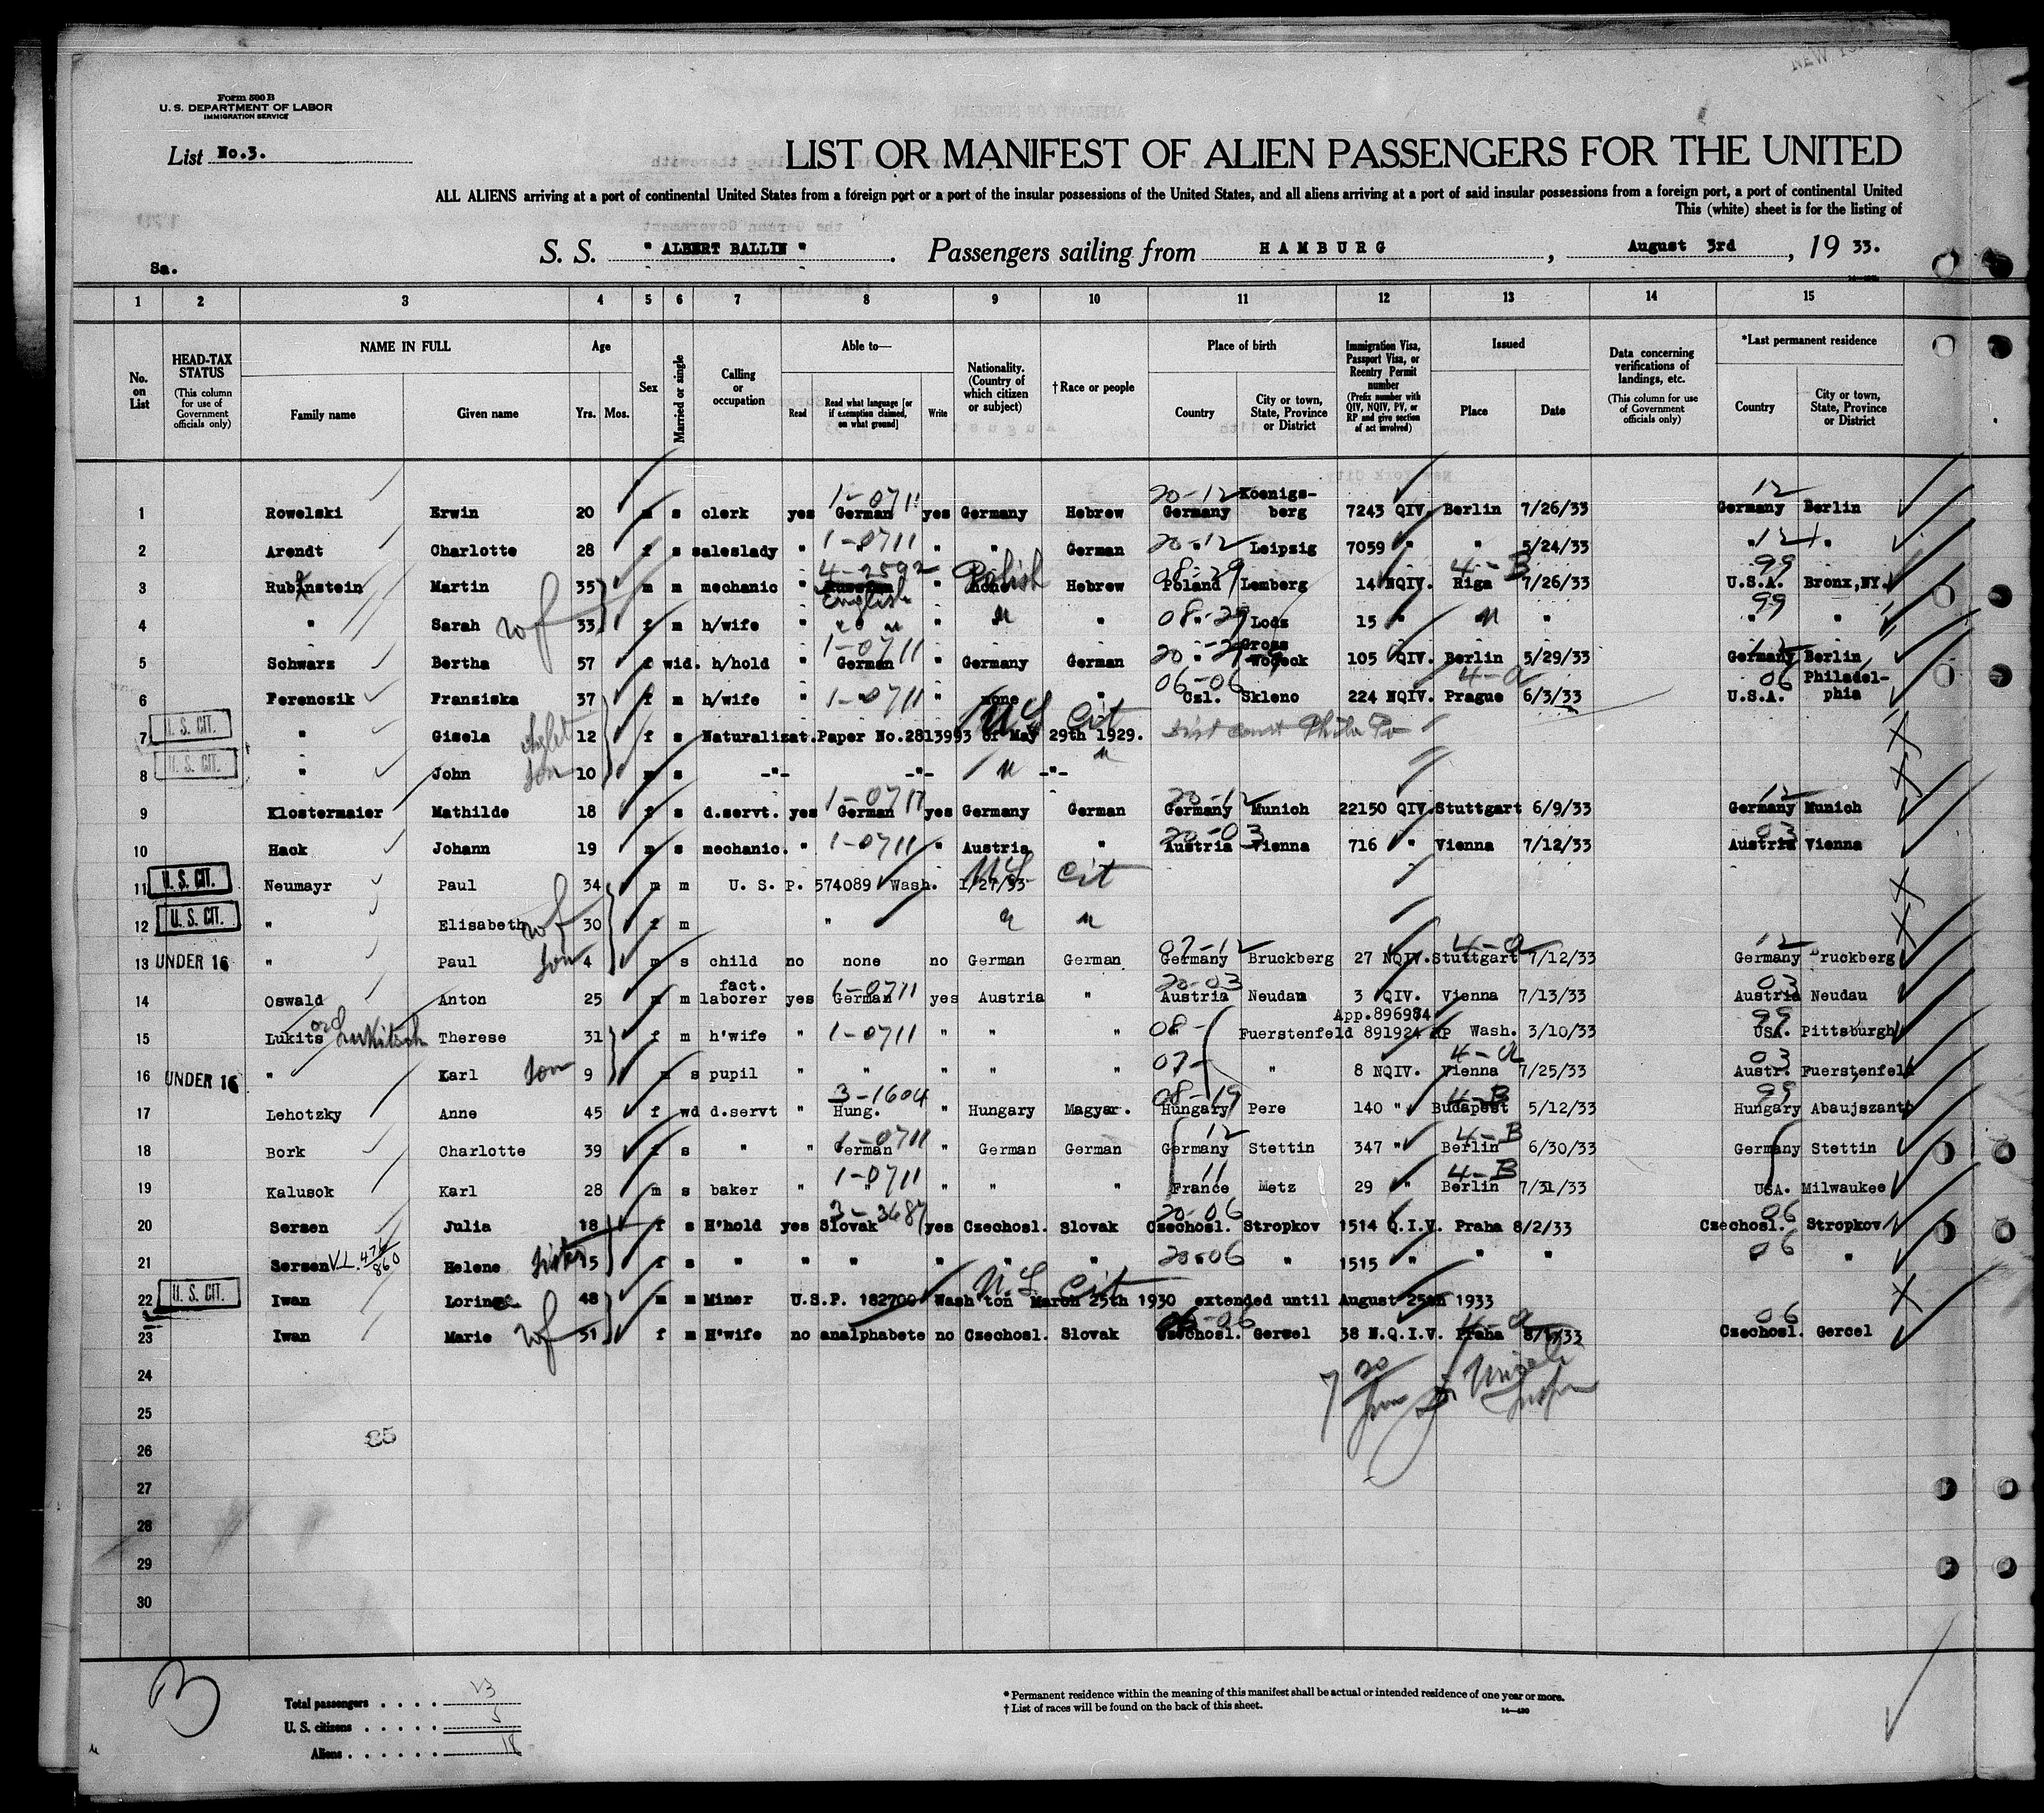 Form 500 B
U. S. DEPARTMENT OF LABOR
IMMIGRATION SERVICE
List No.3.
LIST OR MANIFEST OF ALIEN PASSENGERS FOR THE UNITED
ALL ALIENS arriving at a port of continental United States from a foreign port or a port of the insular possessions of the United States, and all aliens arriving at a port of said insular possessions from a foreign port, a port of continental United
This (white) sheet is for the listing of
Sa.
S. S. " ALBERT BALLIN " . Passengers sailing from HAMBURG , August 3rd , 19 33.
1 2 3 4 5 6 7 8 9 10 11 12 13 14 15
No. on List
HEAD-TAX STATUS (This column for use of Government officials only)
NAME IN FULL Family name Given name
Age Yrs. Mos.
Sex
Married or single
Calling or occupation
Able to— Read Read what language [or if exemption claimed, on what ground] Write
Nationality. (Country of which citizen or subject)
† Race or people
Place of birth Country City or town, State, Province or District
Immigration Visa, Passport Visa, or Reentry Permit number (Prefix number with QIV, NQIV, PV, or RP and give section of act involved)
Issued Place Date
Data concerning verifications of landings, etc. (This column for use of Government officials only)
*Last permanent residence Country City or town, State, Province or District
1 Rowelski Erwin 20 m s clerk yes German 1-0711 yes Germany Hebrew 20-12 Germany Koenigs-berg 7243 QIV. Berlin 7/26/33 12 Germany Berlin
2 Arendt Charlotte 28 f s saleslady " 1-0711 " " German 20-12 " Leipzig 7059 " " 5/24/33 " 12 "
3 Rubinstein Martin 35 m m mechanic " 4-2592 Russian English " none Polish Hebrew 08-29 Poland Lemberg 14 NQIV. Riga 4-B 7/26/33 99 U.S.A. Bronx,NY.
4 " Sarah wf 33 f m h/wife " " " " " 08-29 " Lodz 15 " " " 99 " "
5 Schwarz Bertha 57 f wid. h/hold " 1-0711 German " Germany German 20 " Gross 105 QIV. Berlin 5/29/33 12 Germany Berlin
6 Ferencsik Fransiska 37 f m h/wife " 1-0711 " none " 06-06 Czl. Skleno 224 NQIV. Prague 4-a 6/3/33 06 U.S.A. Philadel-phia
7 U. S. CIT. " Gisela 12 f s Naturalizat.Paper No.2813993 of May 29th 1929. US Cit
8 U. S. CIT. " John son 10 m s -"- -"- " -"- "
9 Klostermaier Mathilde 18 f s d.servt. yes 1-0711 German yes Germany German 20-12 Germany Munich 22150 QIV. Stuttgart 6/9/33 12 Germany Munich
10 Hack Johann 19 m s mechanic. " 1-0711 " Austria " 20-03 Austria Vienna 716 " Vienna 7/12/33 03 Austria Vienna
11 U. S. CIT. Neumayr Paul 34 m m U. S. P. 574089 Wash. 1/27/33 US Cit
12 U. S. CIT. " Elisabeth wf 30 f m " " "
13 UNDER 16 " Paul son 4 m s child no none no German German 07-12 Germany Bruckberg 27 NQIV. Stuttgart 4-a 7/12/33 12 Germany Bruckberg
14 Oswald Anton 25 m m fact. laborer yes 1-0711 German yes Austria " 20-03 Austria Neudau 3 QIV. Vienna 7/13/33 03 Austria Neudau
15 Lukits or Lukitsch Therese 31 f m h'wife " 1-0711 " " " 08- Fuerstenfeld App.896984 891924 RP Wash. 3/10/33 99 USA. Pittsburgh
16 UNDER 16 " Karl son 9 m s pupil " " " " " 07- " 8 NQIV. Vienna 4-a 7/25/33 03 Austr. Fuerstenfeld
17 Lehotzky Anne 45 f wd d.servt " 3-1604 Hung. " Hungary Magyar. 08-19 Hungary Pere 140 " Budapest 4-B 5/12/33 99 Hungary Abaujszanto
18 Bork Charlotte 39 f s " " 1-0711 German " German German 12 Germany Stettin 347 " Berlin 4-B 6/30/33 Germany Stettin
19 Kalusok Karl 28 m s baker " 1-0711 " " " " 11 France Metz 29 " Berlin 4-B 7/31/33 USA. Milwaukee
20 Sersen Julia 18 f s H'hold yes 3-3687 Slovak yes Czechosl. Slovak 20-06 Czechosl. Stropkov 1514 Q.I.V. Praha 8/2/33 06 Czechosl. Stropkov
21 Sersen V.L. 476/860 Helene sister 15 f s " " " " " " 20-06 " " 1515 " " " 06 " "
22 U. S. CIT. Iwan Lorinz 48 m m Miner U.S.P. 182700 Wash'ton March 25th 1930 extended until August 25th 1933 US Cit
23 Iwan Marie wf 51 f m H'wife no analphabete no Czechosl. Slovak 06 Czechosl. Gercel 38 N.Q.I.V. Praha 4-a 8/1/33 06 Czechosl. Gercel
24
25
26
27
28
29
30
Total passengers . . . . 23
U. S. citizens . . . . . 5
Aliens . . . . . . 18
* Permanent residence within the meaning of this manifest shall be actual or intended residence of one year or more.
† List of races will be found on the back of this sheet.
14—430